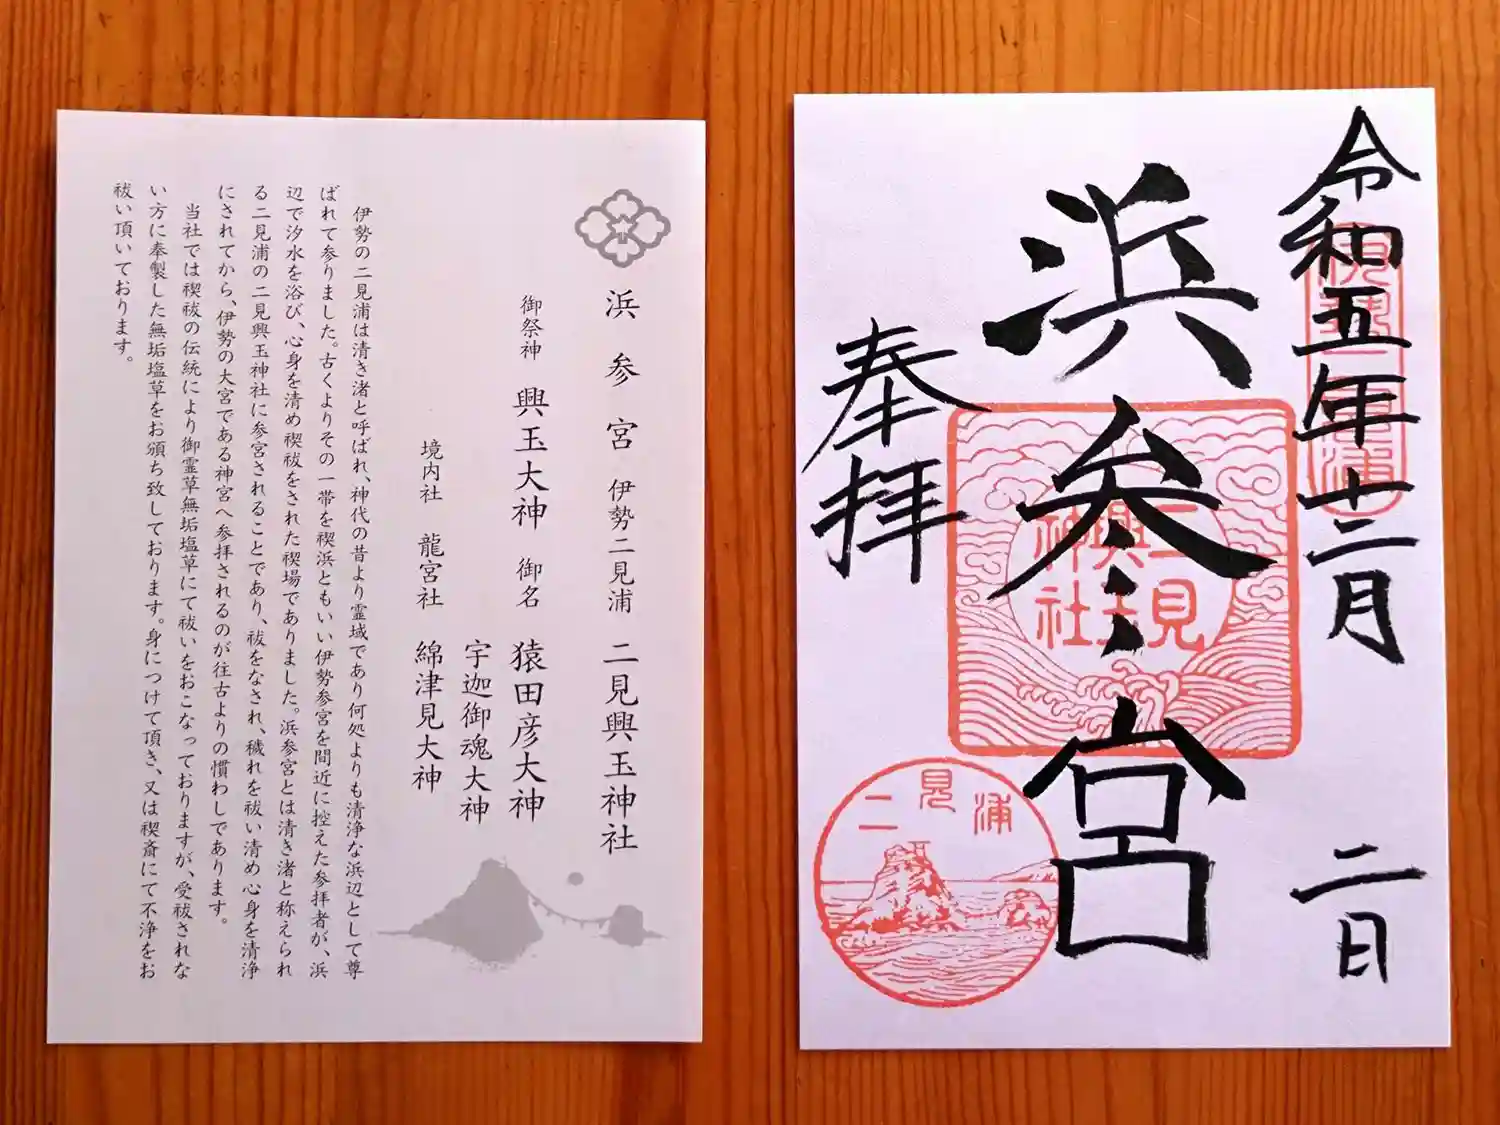 浜参宮 伊勢二見浦 二見興玉神社
御祭神 興玉大神 御名 猿田彦大神
宇迦御魂大神
境内社 龍宮社 綿津見大神
伊勢の二見浦は清き渚と呼ばれ、神代の昔より霊域であり何処よりも清浄な浜辺として尊
ばれて参りました。古くよりその一帯を禊浜ともいい伊勢参宮を間近に控えた参拝者が、浜
辺で汐水を浴び、心身を清め禊祓をされた禊場でありました。浜参宮とは清き渚と称えられ
る二見浦の二見興玉神社に参宮されることであり、祓をなされ、穢れを祓い清め心身を清浄
にされてから、伊勢の大宮である神宮へ参拝されるのが往古よりの慣わしであります。
当社では禊祓の伝統により御霊草無垢塩草にて祓いをおこなっておりますが、受祓されな
い方に奉製した無垢塩草をお頒ち致しております。身につけて頂き、又は禊斎にて不浄をお
祓い頂いております。
令和五年十二月 二日
浜参宮
奉拝
二見
興玉
神社
二見浦